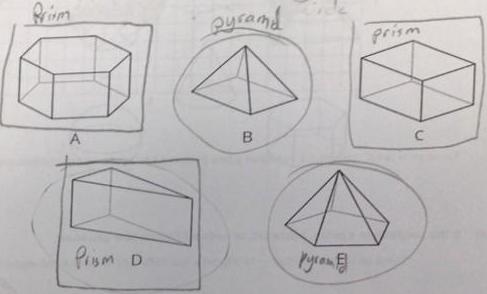 Prism
pyramd
prism
A
B
C
Prism D
pyramd E